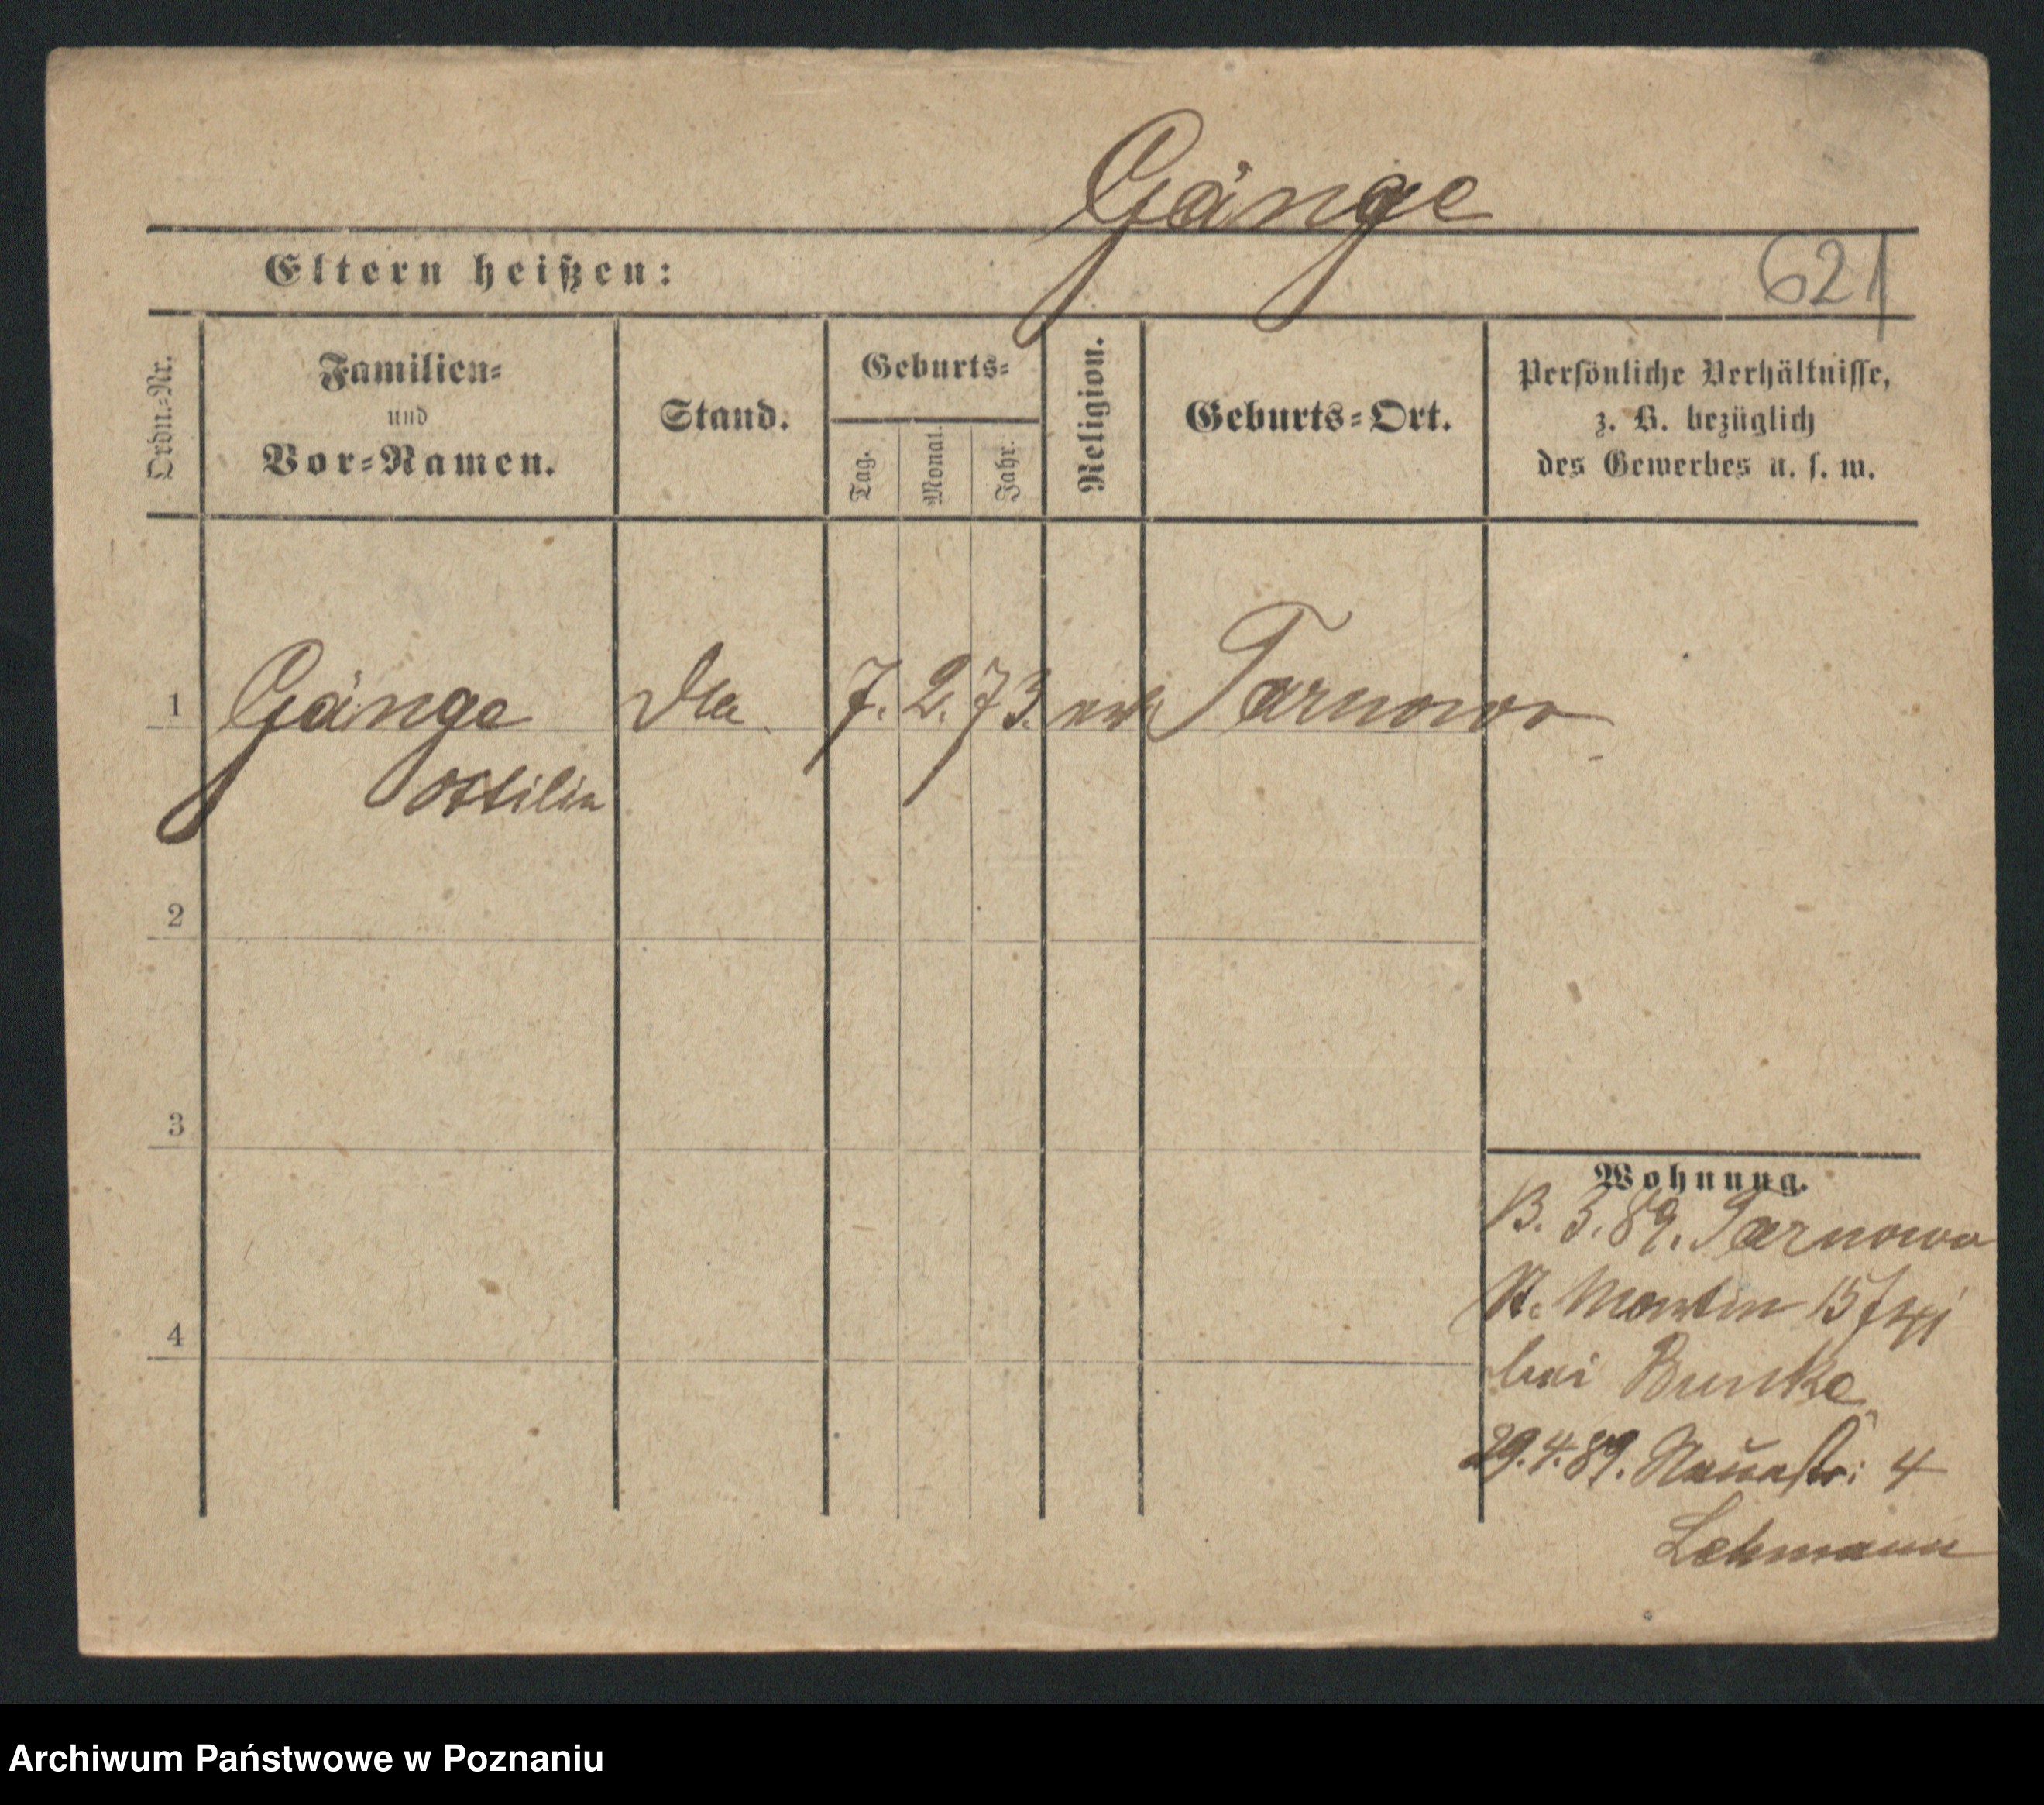 Gänge
Eltern heißen:
621
Ordn.-Nr.
Familien-
und
Vor-Namen.
Stand.
Geburts-
Tag.
Monat.
Jahr.
Religion.
Geburts-Ort.
Persönliche Verhältnisse,
z. B. bezüglich
des Gewerbes u. s. w.
1 Gänge 7. 2. 73. Tarnowo
Ottilie
2
3
4
Wohnung.
3. 89. Tarnowo
St. Martin 15
bei Bunke
29.4.89. Neuestr: 4
Lehmann
Archiwum Państwowe w Poznaniu